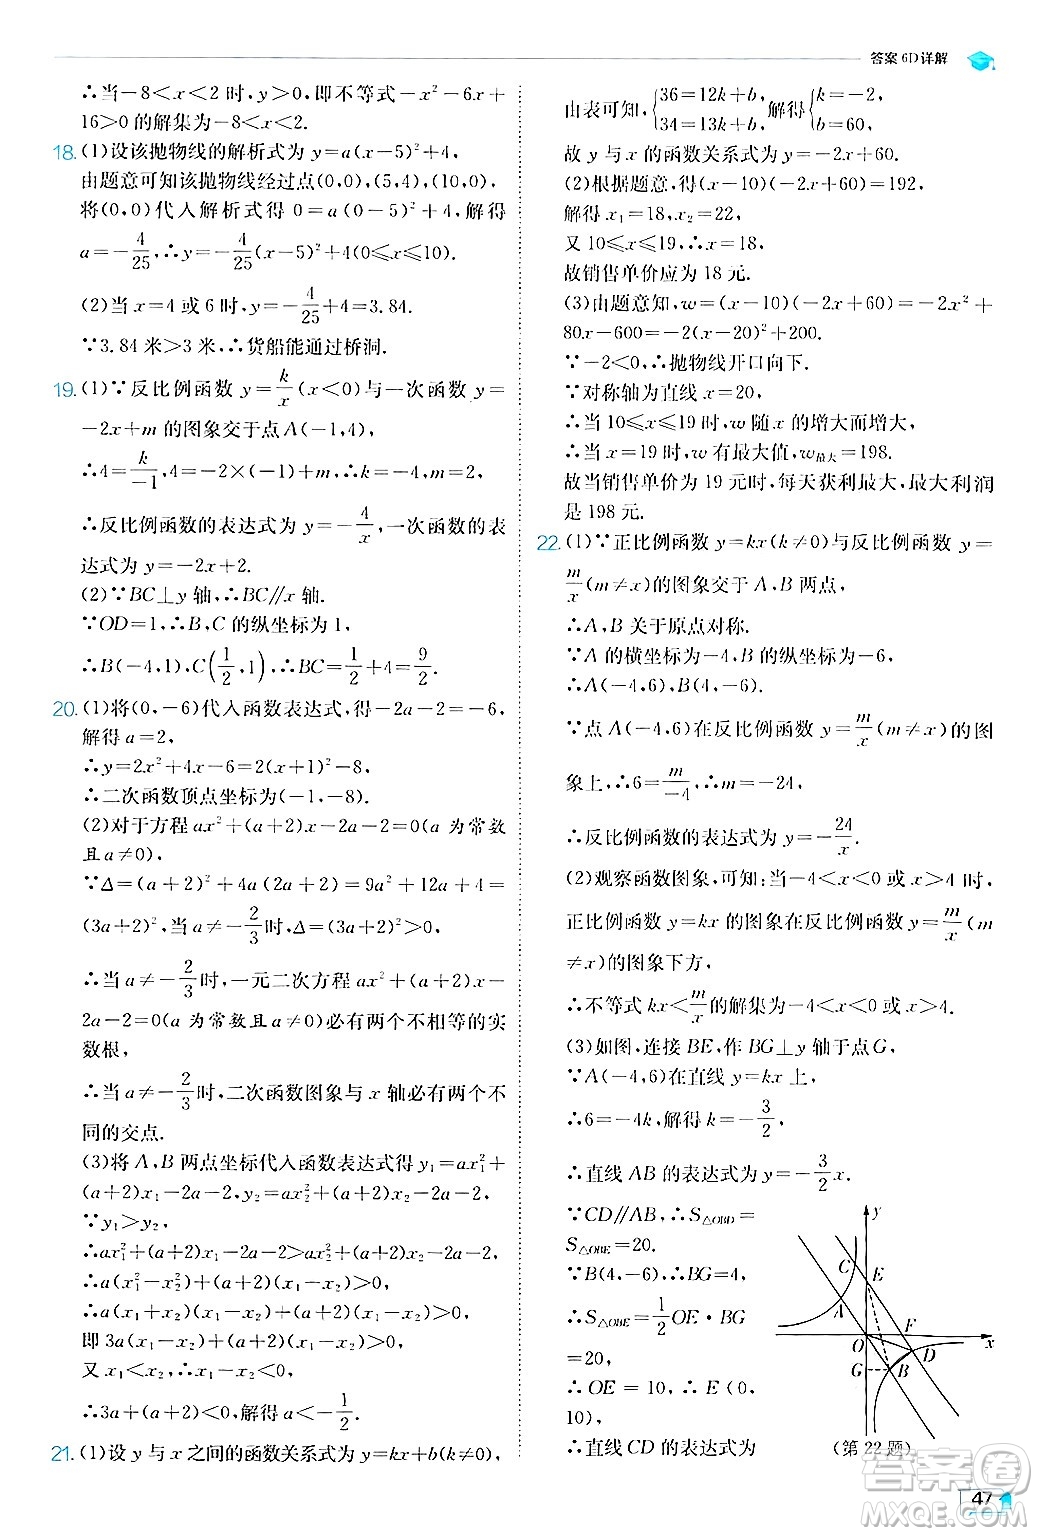 答案 6D 详解
∴当-8<x<2 时,y>0,即不等式-x²-6x+
16>0 的解集为-8<x<2.
18. (1)设该抛物线的解析式为 y=a(x-5)²+4,
由题意可知该抛物线经过点(0,0),(5,4),(10,0),
将(0,0)代入解析式得 0=a(0-5)²+4,解得
a=-4/25,∴y=-4/25(x-5)²+4(0≤x≤10).
(2)当 x=4 或 6 时,y=-4/25+4=3.84.
∵3.84 米>3 米,∴货船能通过桥洞.
19. (1)∵反比例函数 y=k/x(x<0)与一次函数 y=
-2x+m 的图象交于点 A(-1,4),
∴4=k/-1,4=-2×(-1)+m,∴k=-4,m=2,
∴反比例函数的表达式为 y=-4/x,一次函数的表
达式为 y=-2x+2.
(2)∵BC⊥y 轴,∴BC∥x 轴.
∵OD=1,∴B,C 的纵坐标为 1,
∴B(-4,1),C(1/2,1),∴BC=1/2+4=9/2.
20. (1)将(0,-6)代入函数表达式,得-2a-2=-6,
解得 a=2,
∴y=2x²+4x-6=2(x+1)²-8,
∴二次函数顶点坐标为(-1,-8).
(2)对于方程 ax²+(a+2)x-2a-2=0(a 为常数
且 a≠0),
∵Δ=(a+2)²+4a(2a+2)=9a²+12a+4=
(3a+2)²,当 a≠-2/3时,Δ=(3a+2)²>0,
∴当 a≠-2/3时,一元二次方程 ax²+(a+2)x-
2a-2=0(a 为常数且 a≠0)必有两个不相等的实
数根,
∴当 a≠-2/3时,二次函数图象与 x 轴必有两个不
同的交点.
(3)将 A,B 两点坐标代入函数表达式得 y₁=ax₁²+
(a+2)x₁-2a-2,y₂=ax₂²+(a+2)x₂-2a-2,
∵y₁>y₂,
∴ax₁²+(a+2)x₁-2a-2>ax₂²+(a+2)x₂-2a-2,
∴a(x₁²-x₂²)+(a+2)(x₁-x₂)>0,
∴a(x₁+x₂)(x₁-x₂)+(a+2)(x₁-x₂)>0,
即 3a(x₁-x₂)+(a+2)(x₁-x₂)>0,
又 x₁<x₂,
∴3a+(a+2)<0,解得 a<-1/2.
21. (1)设 y 与 x 之间的函数关系式为 y=kx+b(k≠0),
由表可知,{36=12k+b, 34=13k+b, 解得{k=-2, b=60,
故 y 与 x 的函数关系式为 y=-2x+60.
(2)根据题意,得(x-10)(-2x+60)=192,
解得 x₁=18,x₂=22,
又 10≤x≤19,∴x=18,
故销售单价应为 18 元.
(3)由题意知,w=(x-10)(-2x+60)=-2x²+
80x-600=-2(x-20)²+200.
∵-2<0,∴抛物线开口向下.
∵对称轴为直线 x=20,
∴当 10≤x≤19 时,w 随 x 的增大而增大,
∴当 x=19 时,w 有最大值,w最大=198.
故当销售单价为 19 元时,每天获利最大,最大利润
是 198 元.
22. (1)∵正比例函数 y=kx(k≠0)与反比例函数 y=
m/x(m≠x)的图象交于 A,B 两点,
∴A,B 关于原点对称.
∵A 的横坐标为-4,B 的纵坐标为-6,
∴A(-4,6),B(4,-6).
∵点 A(-4,6)在反比例函数 y=m/x(m≠x)的图
象上,∴6=m/-4,∴m=-24,
∴反比例函数的表达式为 y=-24/x.
(2)观察函数图象,可知:当-4<x<0 或 x>4 时,
正比例函数 y=kx 的图象在反比例函数 y=m/x(m
≠x)的图象下方,
∴不等式 kx<m/x的解集为-4<x<0 或 x>4.
(3)如图,连接 BE,作 BG⊥y 轴于点 G,
∵A(-4,6)在直线 y=kx 上,
∴6=-4k,解得 k=-3/2,
∴直线 AB 的表达式为 y=-3/2x.
∵CD∥AB,∴S△OBD=
S△OBE=20.
∵B(4,-6),∴BG=4,
∴S△OBE=1/2OE·BG
=20,
∴OE=10,∴E(0,
10),
∴直线 CD 的表达式为
y
C
E
A
F
O
D
x
G
B
(第 22 题)
答案圈
MXQE.COM
47